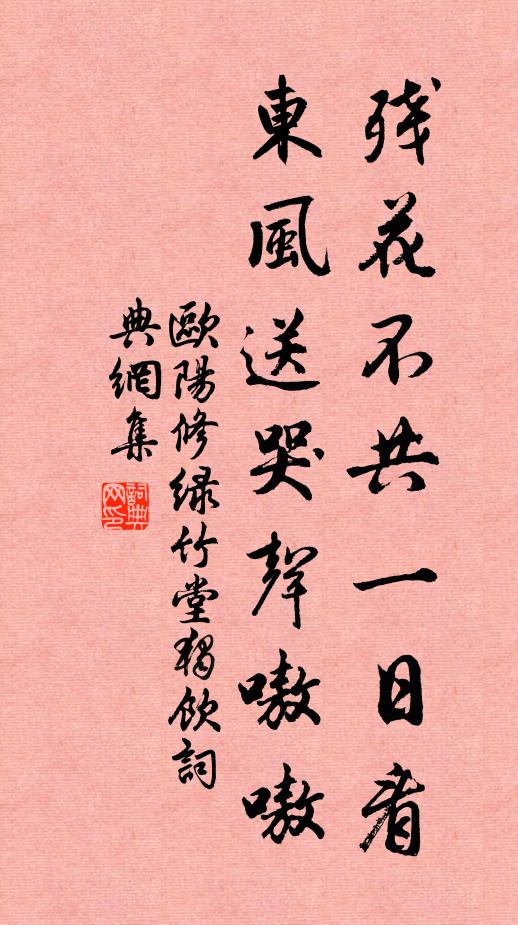 残花不共一日看
東風送哭聲嗷嗷
歐陽修緑竹堂獨飲詞
典網集
詞典网印